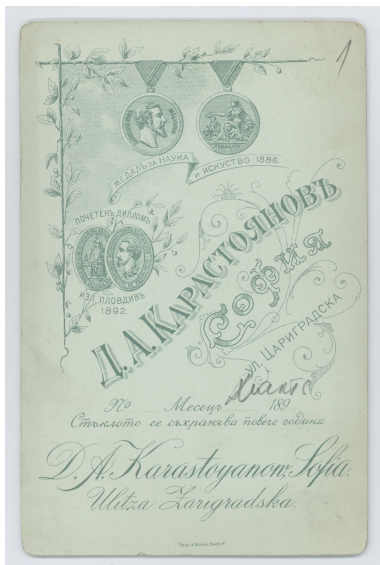 1
МЕДАЛЪ ЗА НАУКА И ИСКУСТВО 1886.
ПОЧЕТЕНЪ ДИПЛОМЪ
ИЗЛ. ПЛОВДИВЪ
1892.
Д. А. КАРАСТОЯНОВЪ
София
УЛ. ЦАРИГРАДСКА
No Месецъ 189
Стъклото се съхранява повече години
D. A. Karastoyanow, Sofia.
Ulitza Zarigradska.